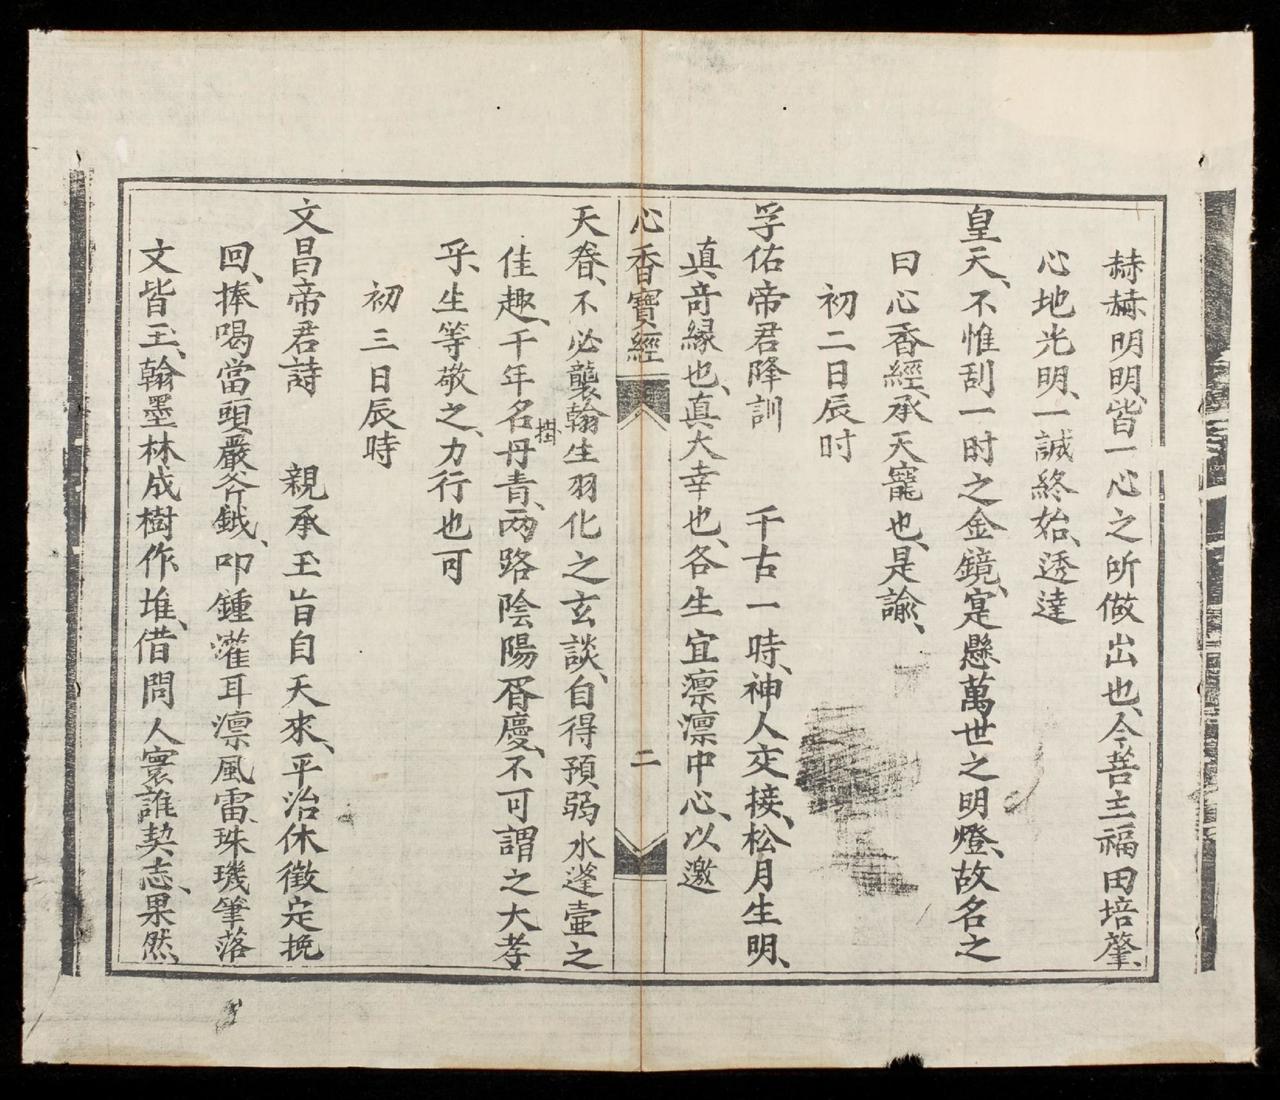 赫赫明明、皆一心之所做出也、今善士福田培肇、
心地光明、一誠終始、透達
皇天、不惟刮一时之金鏡、寔懸萬世之明燈、故名之
曰心香經、承天寵也、是諭、
初二日辰时
孚佑帝君降訓 千古一時、神人交接、松月生明、
真奇緣也、真大幸也、各生宜凛凛中心、以邀
心香寶經 二
天眷、不必襲翰生羽化之玄談、自得預弱水蓬壷之
佳趣、千年名掛丹青、两路陰陽胥慶、不可謂之大孝
乎、生等敬之、力行也可
初三日辰時
文昌帝君詩 親承玉旨自天來、平治休徵定挽
回、捧喝當頭嚴斧鉞、叩鍾灌耳凛風雷、珠璣筆落
文皆玉、翰墨林成樹作堆、借問人寰誰契志、果然、